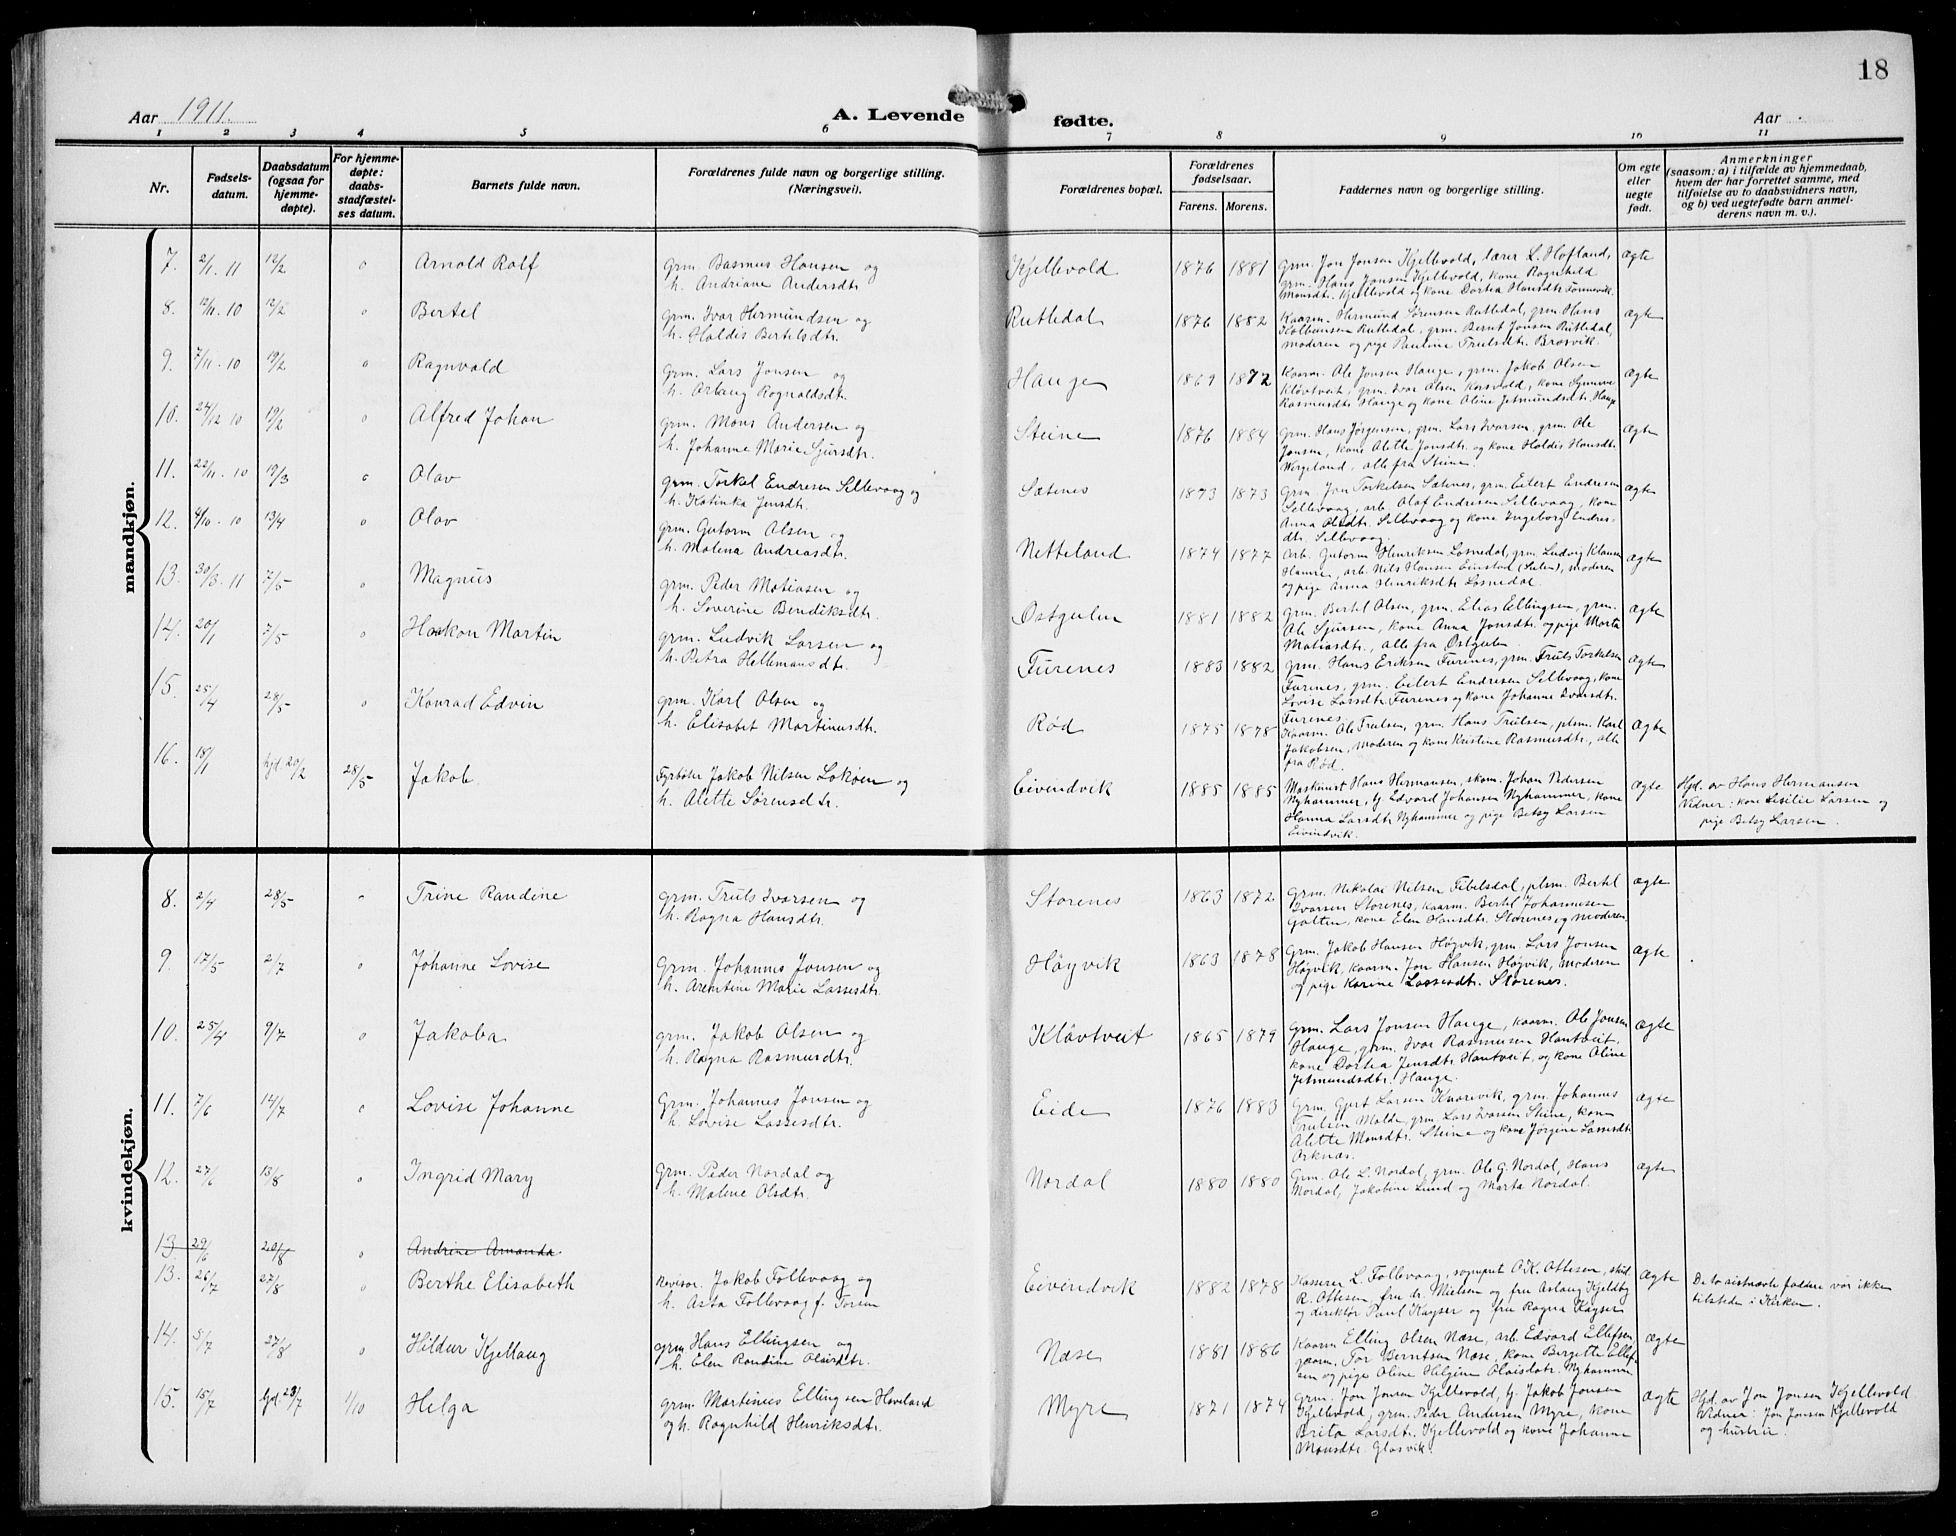 18
Aar 1911.
A. Levende fødte.
Aar
1 2 3 4 5 6 7 8 9 10 11
Nr.
Fødsels-
datum.
Daabsdatum
(ogsaa for
hjemme-
døpte).
For hjemme-
døpte:
daabs-
stadfæstel-
ses datum.
Barnets fulde navn.
Forældrenes fulde navn og borgerlige stilling.
(Næringsvei).
Forældrenes bopæl.
Forældrenes
fødselsaar.
Farens. Morens.
Faddernes navn og borgerlige stilling.
Om egte
eller
uegte
født.
Anmerkninger
(saasom: a) i tilfælde av hjemmedaab,
hvem der har forrettet samme, med
tilføielse av to daabsvidners navn,
og b) ved uegtefødte barn anmel-
derens navn m. v.).
mandkjøn.
7. 2/1. 11 12/2 0 Arnold Rolf
grm. Rasmus Hansen og
h. Andriane Andersdtr.
Kjellevold 1876 1881
grm. Jon Jonsen Kjellevold, lærer L. Hofland,
grm. Hans Jonsen Kjellevold, kone Ragnhild
Monsdtr. Kjellevold og kone Dortea Hansdtr. Tønnevik.
Ægte
8. 12/11. 10 12/2 0 Bertel
grm. Ivar Hermundsen og
h. Haldis Bertelsdtr.
Rutledal 1876 1882
Kaarm. Hermund Sørensen Rutledal, grm Hans
Kolbansen Rutledal, grm. Bernt Jonsen Rutledal,
moderen og pige Pauline Trulsdtr. Brosvik.
Ægte
9. 7/11. 10 19/2 0 Ragnvald
grm. Lars Jonsen og
h. Aslaug Ragnaldsdtr.
Hauge 1869 1872
Kaarm. Ole Jonsen Hauge, grm. Jakob Olsen
Kløvtveit, grm. Ivar Olsen Karsvold, kone Synneve
Rasmusdtr. Hauge og kone Aline Jetmundsdtr. Hauge
Ægte
10. 24/12 10 19/2 0 Alfred Johan
grm. Mons Andersen og
h. Johanne Marie Sjursdtr.
Steine 1876 1884
Grm. Hans Jörgensen, grm. Lars Ivarsen, grm. Ole
Jonsen, kone Alette Jonsdtr. og kone Haldis Hansdtr.
Wergeland, alle fra Steine.
Ægte
11. 22/11. 10 19/3 0 Olav
grm. Torkel Endresen Sellevaag og
h. Katinka Jensdtr.
Sætenes 1873 1873
Grm. Jon Torkelsen Sætenes, grm. Eilert Endresen
Sellevaag, arb. Olaf Endresen Sellevaag, kone
Anna Olsdtr. Sellevaag og kone Ingeborg Endres-
dtr. Sellevaag.
Ægte
12. 4/10. 10 13/4 0 Olav
grm. Gutorm Olsen og
h. Malena Andreasdtr.
Netteland 1874 1877
Arb. Gutorm Henriksen Losnedal, grm. Ludvig Klausen
Hamre, arb. Nils Hansen Einstad (Sulen), moderen
og pige Anna Henriksdtr Losnedal.
Ægte
13. 30/3. 11 7/5 0 Magnus
grm. Peder Matiasen og
h. Severine Bendiksdtr.
Østgulen 1881 1882
Grm. Bertel Olsen, grm. Elias Ellingsen, grm.
Ole Sjursen, kone Anna Jonsdtr. og pige Marta
Matiasdtr., alle fra Østgulen.
Ægte
14. 20/1 7/5 0 Haakon Martin
grm. Ludvik Larsen og
h. Petra Hellemansdtr.
Furenes 1883 1882
grm. Hans Eriksen Furenes, grm. Truls Torkelsen
Furenes, grm. Eilert Endresen Sellevaag, kone
Lovise Larsdtr. Furenes og kone Johanne Ivarsdtr.
Furenes.
Ægte
15. 25/4 28/5 0 Konrad Edvin
grm. Karl Olsen og
h. Elisabet Martinusdtr.
Rød 1875 1878
Kaarm. Ole Trulsen, grm. Hans Trulsen, plsm. Karl
Jakobsen, moderen og kone Kristine Rasmusdtr., alle
fra Rød.
Ægte
16. 18/1 hjd. 20/2 28/5 Jakob.
Fyrbøter Jakob Nilsen Lokøen og
h. Alette Sørensdtr.
Eivindvik 1885 1885
Maskinist Hans Hermansen, skom. Johan Pedersen
Nyhammer, tj. Edvard Johansen Nyhammer, kone
Hanna Larsdtr Nyhammer og pige Betsy Larsen
Eivindvik.
Ægte
Hjd. av Hans Hermansen
Vidner: kone Lesilie Larsen og
pige Betsy Larsen.
kvindekjøn.
8. 2/4 28/5 0 Trine Randine
grm. Truls Ivarsen og
h. Ragna Hansdtr.
Storenes 1863 1872
Grm. Nikolai Nilsen Tibelsdal, plsm. Bertel
Ivarsen Storenes, kaarm. Bertel Johannesen
Gotten, kone Elen Hansdtr. Storenes og moderen.
Ægte
9. 17/5 2/7 0 Johanne Lovise
Grm. Johannes Jonsen og
h. Arentine Marie Lassesdtr.
Høyvik 1863 1878
Grm. Jakob Hansen Høyvik, grm. Lars Jonsen
Høyvik, kaarm. Jon Hansen Høyvik, moderen
og pige Karine Lassesdtr. Storenes.
Ægte
10. 25/4 9/7 0 Jakoba
grm. Jakob Olsen og
h. Ragna Rasmusdtr.
Kløvtveit 1865 1879
Grm. Lars Jonsen Hauge, kaarm. Ole Jonsen
Hauge, grm. Ivar Rasmusen Hantveit,
kone Dortea Jensdtr. Hantveit, og kone Aline
Jetmundsdtr. Hauge.
Ægte
11. 7/6 14/7 0 Lovise Johanne
Grm. Johannes Jonsen og
h. Lovise Lassesdtr.
Eide 1876 1883
Grm. Gjert Larsen Knarvik, grm. Johannes
Trulsen Molde, grm. Lars Ivarsen Steine, kone
Alette Monsdtr. Steine og kone Jörgine Lassesdtr.
Orknæs.
Ægte
12. 27/6 13/8 0 Ingrid Mary
Grm. Peder Nordal og
h. Malene Olsdtr.
Nordal 1880 1880
Grm. Ole L. Nordal, grm. Ole G. Nordal, Hans
Nordal, Jakobine Lund og Marta Nordal.
Ægte
13 29/6 20/8 0 Andrine Amanda.
13. 26/7 27/8 0 Berthe Elisabeth
Revisor. Jakob Follevaag og
h. Asta Follevaag f. Torem
Eivindvik 1882 1878
Kasserer L. Follevaag, sogneprest O.K. Ottesen, stud
R. Ottesen, fru dr. Nielsen og fru Aslaug Kjeldby
og direktør Paul Kayser og fru Ragna Kayser
Ægte
De to sistnævte faddere var ikke
tilstede i Kirken.
14. 5/7 27/8 0 Hildur Kjellaug
grm Hans Ellingsen og
h. Elen Randine Olaisdtr.
Næse 1881 1886
Kaarm Elling Olsen Næse, arb Edvard Ellefsen,
gaarm. Tor Berntsen Næse, kone Bergette Ellef-
sen og pige Oline Helgine Olaisdtr. Nyhammer
Ægte
15. 15/7 hjd 23/7 1/10 Helga
grm. Martinus Ellingsen Haveland
og h. Ragnhild Henriksdtr.
Myre 1871 1874
Grm. Jon Jonsen Kjellevold, tj. Jakob Jonsen
Kjellevold, grm. Peder Andersen Myre, kone
Brita Larsdtr. Kjellevold og kone Johanne
Monsdtr. Glosvik.
Ægte
Hjd. av Jon Jonsen Kjellevold
Vidner: Jon Jonsen Kjellevold
og hustru.